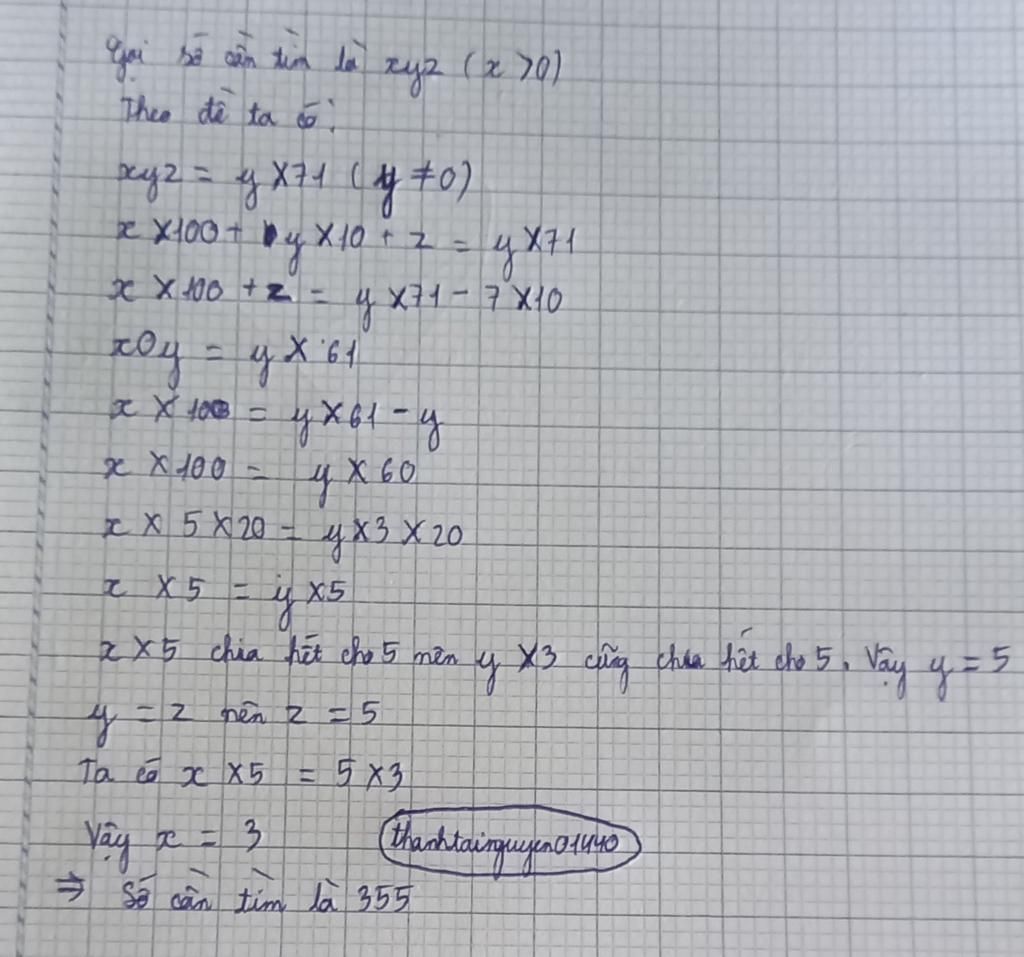 Gọi số cần tìm là xyz (x >0)
Theo đề ta có:
xyz = y X71 (y ≠0)
x X100+ y X10 + z = y X71
x X 100 + z = y X71 - 7 X10
x0y = y X 61
x X 100 = y X61 - y
x X 100 = y X 60
x X 5 X 20 = y X 3 X 20
x X 5 = y X5
x X5 chia hết cho 5 nên y X3 cũng chia hết cho 5. Vậy y = 5
y = z nên z = 5
Ta có x X5 = 5 X3
Vậy x = 3 thanhtainguyen01440
⇒ Số cần tìm là 355